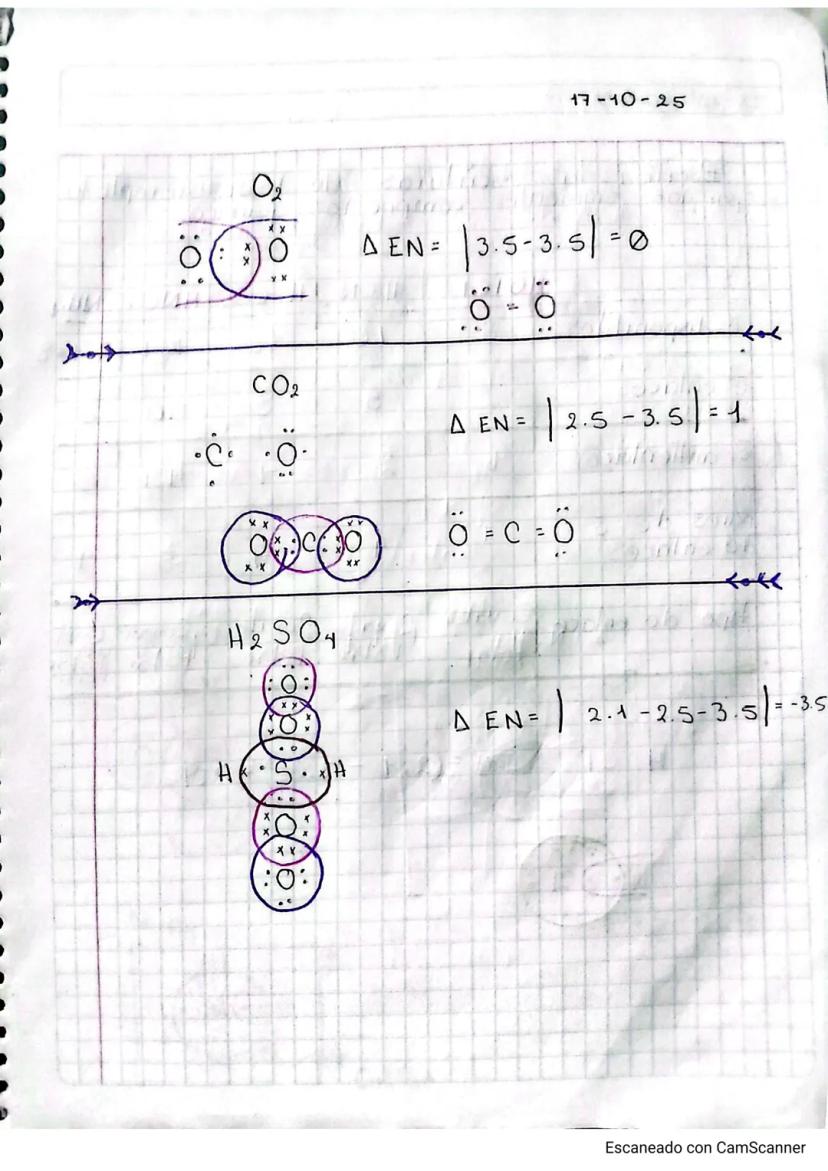 17-10-25
O₂
O O
Δ EN = |3.5-3.5| = 0
O = O
CO₂
Δ EN = |2.5 - 3.5| = 1
C O
O C O
O = C = O
H₂SO₄
O
Δ EN = | 2.1 - 2.5 - 3.5| = -3.5
O
H S H
O
O
Escaneado con CamScanner